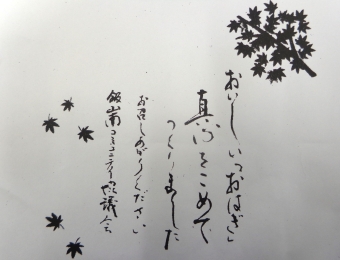 おいしい「おはぎ」
真心をこめて
つくりました
お召しあがりください
飯山南コミュニティー協議会